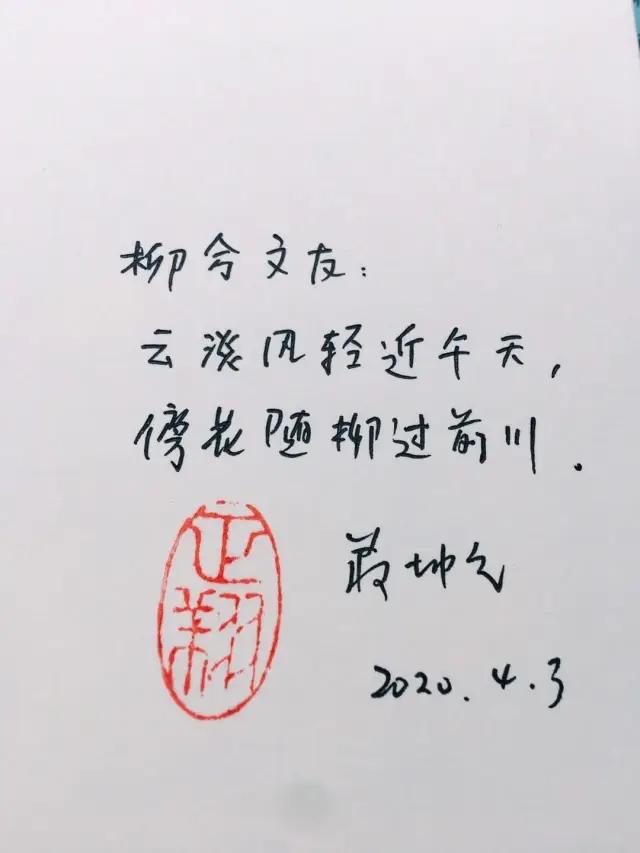 柳兮文友：
云淡风轻近午天，
傍花随柳过前川．
蒋坤元
2020.4.3